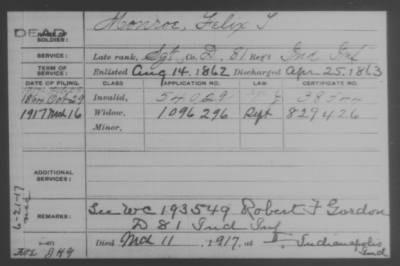 DEAD
NAME OF SOLDIER: Monroe, Felix T
SERVICE: Late rank, Sgt Co. D, 81 Reg't Ind Inf
TERM OF SERVICE: Enlisted Aug 14. 1862 Discharged Apr 25. 1863
DATE OF FILING. CLASS APPLICATION NO. CERTIFICATE NO.
Oct 29 Invalid, 54029 385
1917 Mch 16 Widow, 1096296 Rept 829426
Minor,
ADDITIONAL SERVICES:
REMARKS: See WC 193549 Robert F Gordon
D 81 Ind Inf
Died Mch 11, 1917, at Indianapolis
Ind
6-21-17